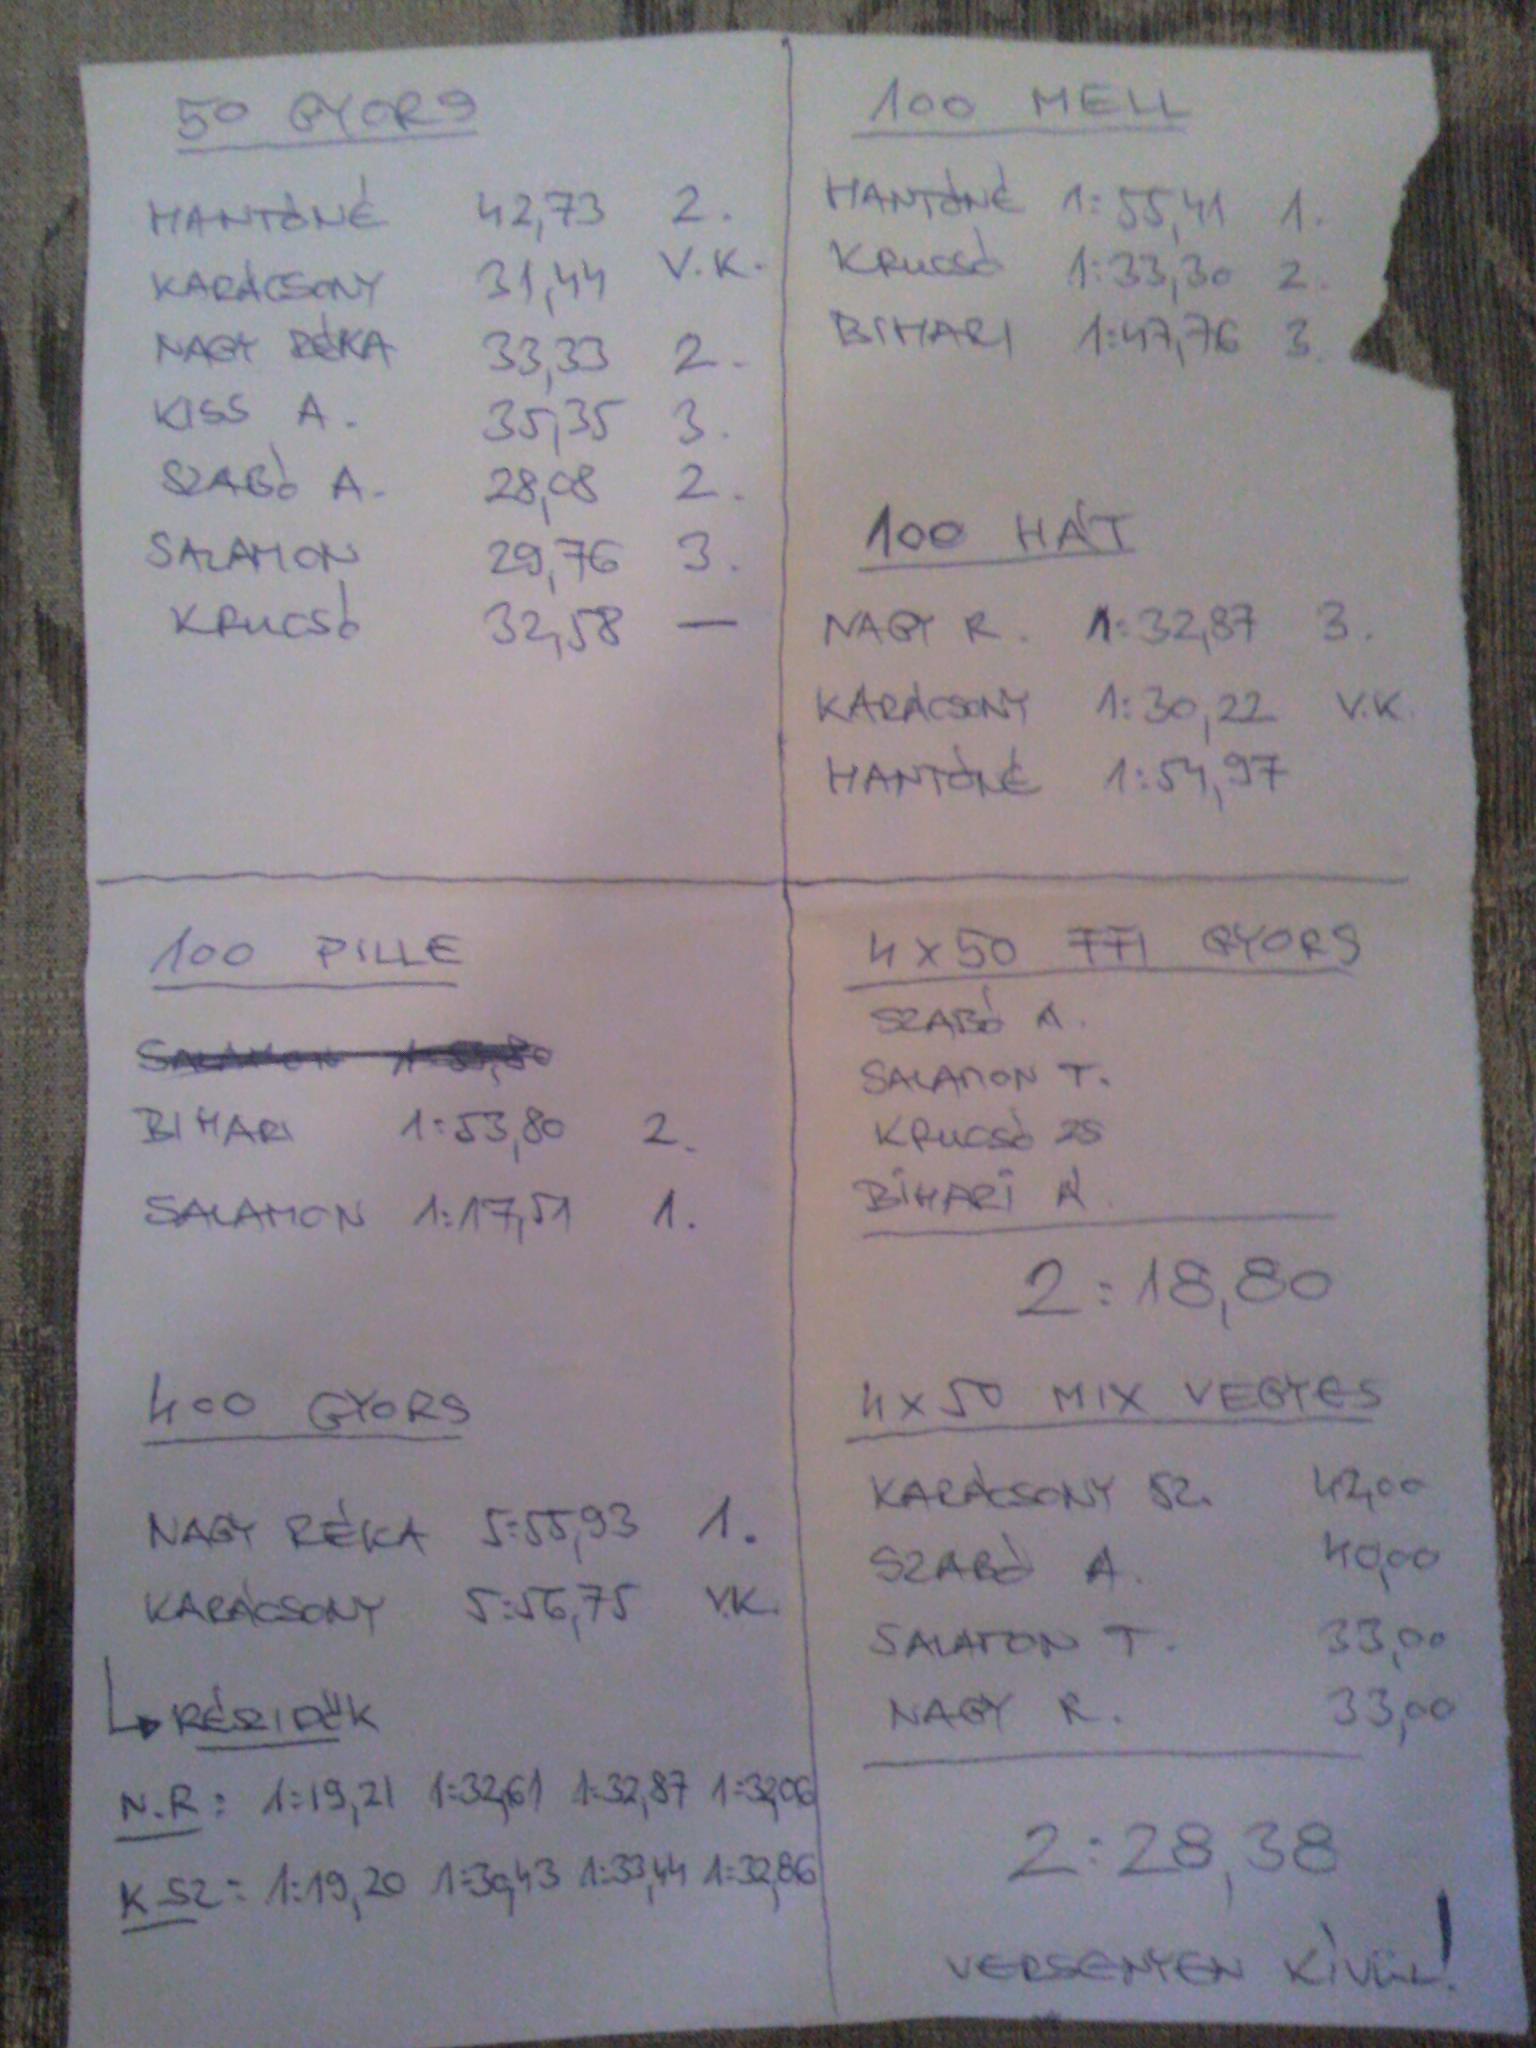 50 GYORS
HANTÓNÉ 42,73 2.
KARÁCSONY 31,44 V.K.
NAGY RÉKA 33,33 2.
KISS A. 35,35 3.
SZABÓ A. 28,08 2.
SALAMON 29,76 3.
KRUCSÓ 32,58 —
100 MELL
HANTÓNÉ 1:55,41 1.
KRUCSÓ 1:33,30 2.
BIHARI 1:47,76 3.
100 HÁT
NAGY R. 1:32,87 3.
KARÁCSONY 1:30,22 V.K.
HANTÓNÉ 1:54,97
100 PILLE
SALAMON 1:53,80
BIHARI 1:53,80 2.
SALAMON 1:17,51 1.
400 GYORS
NAGY RÉKA 5:55,93 1.
KARÁCSONY 5:56,75 V.K.
RÉSZIDŐK
N.R: 1:19,21 1:32,61 1:32,87 1:32,06
K SZ: 1:19,20 1:30,43 1:33,44 1:32,86
4x50 FFI GYORS
SZABÓ A.
SALAMON T.
KRUCSÓ ZS
BIHARI Á.
2:18,80
4x50 MIX VEGYES
KARÁCSONY SZ. 42,00
SZABÓ A. 40,00
SALAMON T. 33,00
NAGY R. 33,00
2:28,38
VERSENYEN KÍVÜL!